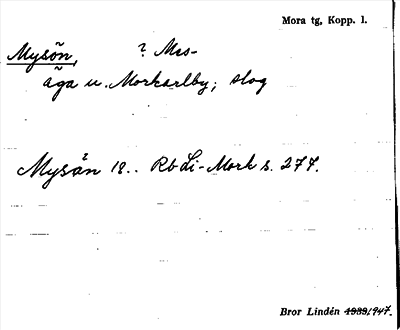 Mora tg, Kopp. l.
Mysõn, ? Mrs-
äga u. Morkarlby; slog
Mysån 18.. Rb Li-Mork s. 274.
Bror Lindén 1939/1947.